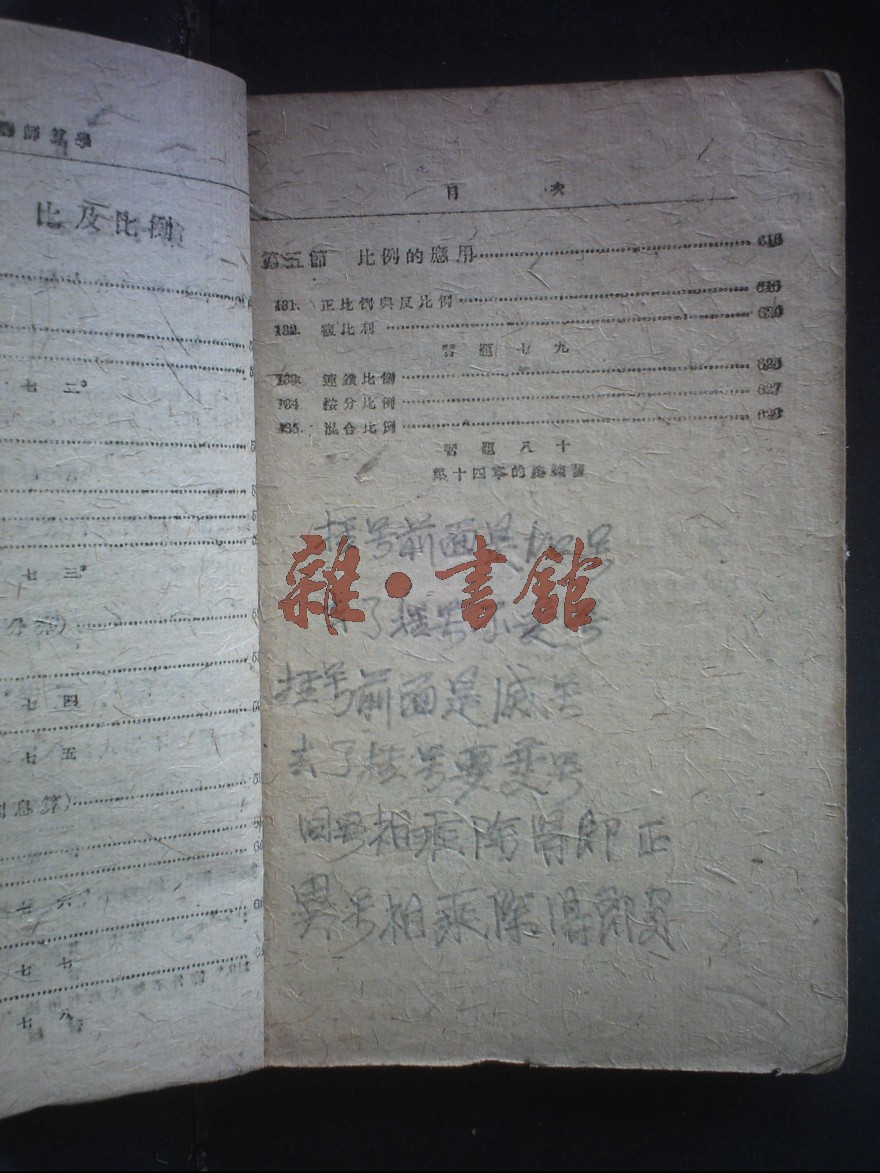 比及比例
七 二
七 三
七 四
七 五
七 六
七 七
七 八
目 次
第五節 比例的應用 616
131. 正比例與反比例 616
132. 複比例
習 題 七 九
133. 連鎖比例 625
134. 按分比例 627
135. 混合比例 629
習 題 八 十
第十四章的總練習
括号前面是加号
去了括号不变号
括号前面是减号
去了括号要变号
同号相乘除得即正
異号相乘除得即負
雜·書館